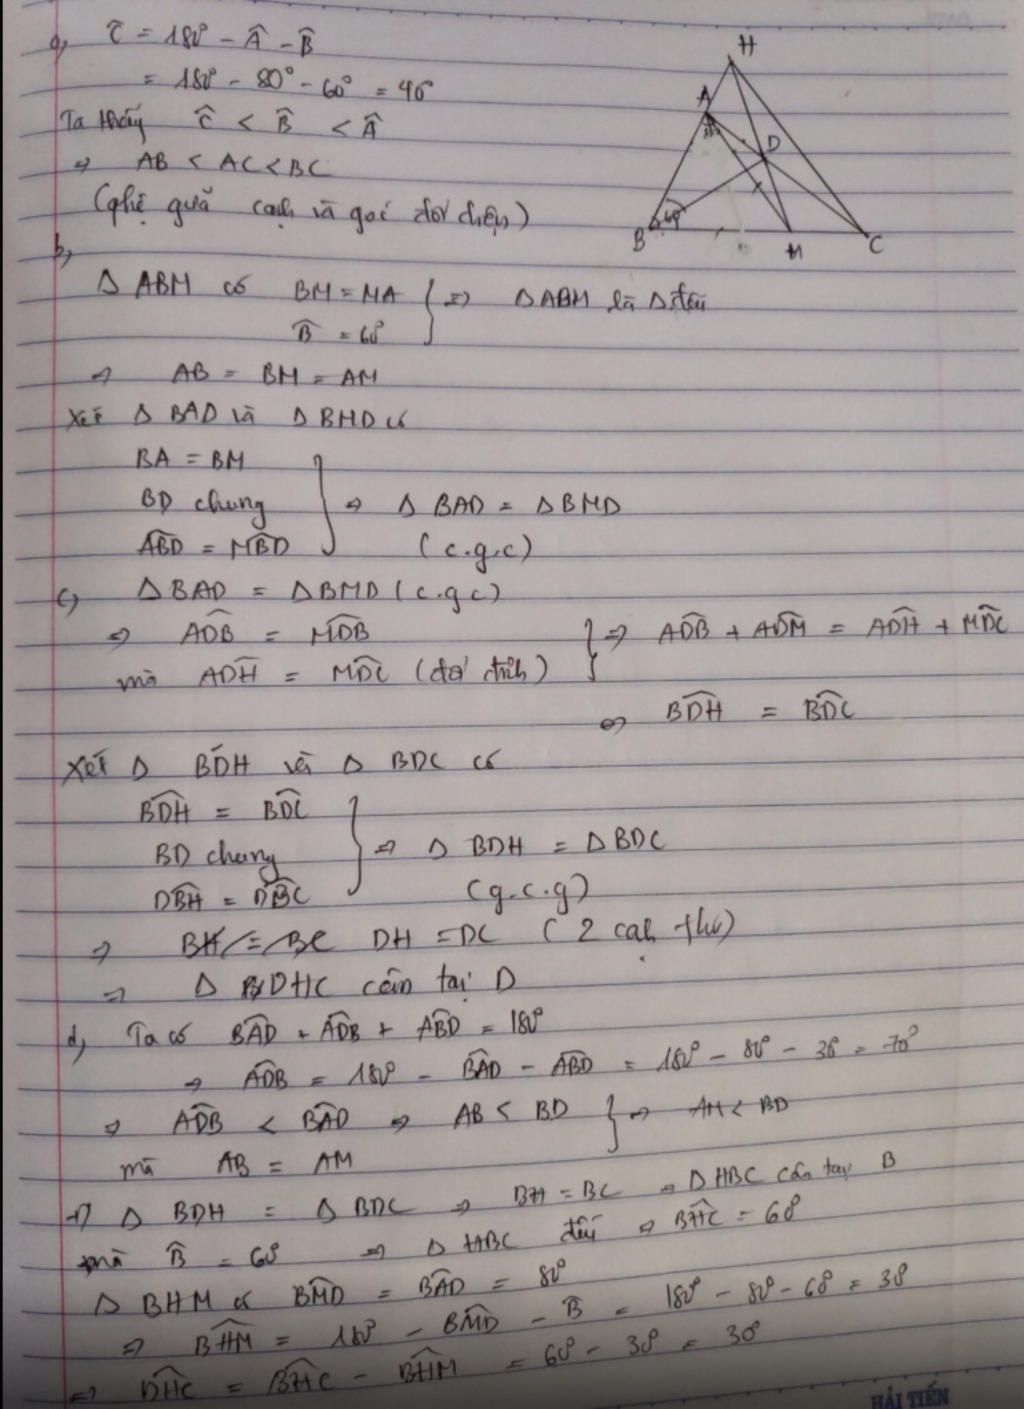 a, Ĉ = 180° - Â - B̂
= 180° - 80° - 60° = 40°
Ta thấy Ĉ < B̂ < Â
⇒ AB < AC < BC
(qhệ giữa cạnh và góc đối diện)
H
A
D
B
60°
M
C
b,
Δ ABM có BM = MA
B̂ = 60°
} ⇒ Δ ABM là Δ đều
⇒ AB = BM = AM
Xét Δ BAD và Δ BMD có
BA = BM
BD chung
ABD̂ = MBD̂
} ⇒ Δ BAD = Δ BMD
(c.g.c)
c, Δ BAD = Δ BMD (c.g.c)
⇒ ADB̂ = MDB̂
mà ADĤ = MDĈ (đối đỉnh)
} ⇒ ADB̂ + ADM̂ = ADĤ + MDĈ
⇔ BDĤ = BDĈ
Xét Δ BDH và Δ BDC có
BDĤ = BDĈ
BD chung
DBĤ = DBĈ
} ⇒ Δ BDH = Δ BDC
(g.c.g)
⇒ BH = BC DH = DC (2 cạh tư)
⇒ Δ DHC cân tại D
d, Ta có BAD̂ + ADB̂ + ABD̂ = 180°
⇒ ADB̂ = 180° - BAD̂ - ABD̂ = 180° - 80° - 30° = 70°
⇒ ADB̂ < BAD̂ ⇒ AB < BD
mà AB = AM
} ⇒ AM < BD
+) Δ BDH = Δ BDC ⇒ BH = BC ⇒ Δ HBC cân tại B
mà B̂ = 60° ⇒ Δ HBC đều ⇒ BHĈ = 60°
Δ BHM có BMD̂ = BAD̂ = 80°
⇒ BHM̂ = 180° - BMD̂ - B̂ = 180° - 80° - 60° = 30°
⇒ DHĈ = BHĈ - BHM̂ = 60° - 30° = 30°
HẢI TIẾN